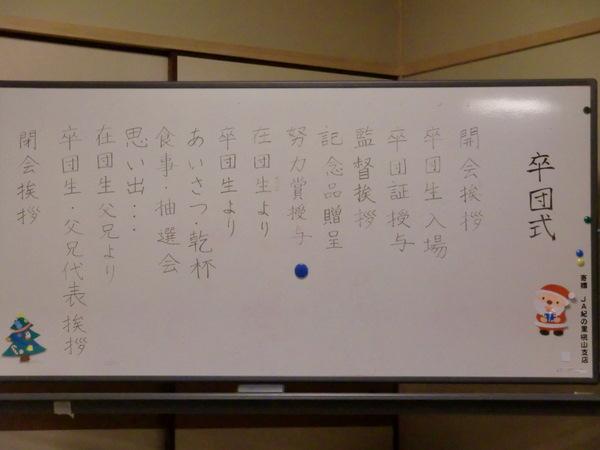 卒団式
開会挨拶
卒団生入場
卒団証授与
監督挨拶
記念品贈呈
努力賞授与
在団生より
卒団生より
あいさつ・乾杯
食事・抽選会
思い出・・・
在団生父兄より
卒団生・父兄代表挨拶
閉会挨拶
寄贈 JA紀の里桃山支店